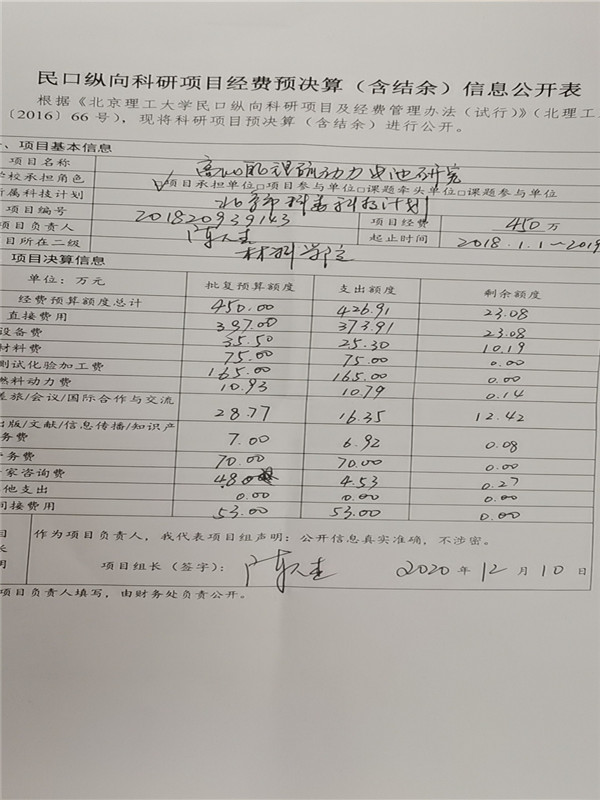 民口纵向科研项目经费预决算（含结余）信息公开表
根据《北京理工大学民口纵向科研项目及经费管理办法（试行）》（北理工
〔2016〕66号），现将科研项目预决算（含结余）进行公开。
、项目基本信息
项目名称 动力电池研究
学校承担角色 ☑项目承担单位□项目参与单位□课题牵头单位□课题参与单位
所属科技计划 科技计划
项目编号 201820939143 项目经费 450万
项目负责人 陈人杰 起止时间 2018.1.1~2019
目所在二级 材料学院
项目决算信息
单位：万元 批复预算额度 支出额度 剩余额度
经费预算额度总计 450.00 426.91 23.08
直接费用 397.00 373.91 23.08
设备费 35.50 25.30 10.19
材料费 75.00 75.00 0.00
测试化验加工费 165.00 165.00 0.00
燃料动力费 10.93 10.79 0.14
差旅/会议/国际合作与交流
28.77 16.35 12.42
出版/文献/信息传播/知识产
务费 7.00 6.92 0.08
务费 70.00 70.00 0.00
家咨询费 4.80 4.53 0.27
他支出 0.00 0.00 0.00
间接费用 53.00 53.00 0.00
目
长
明
作为项目负责人，我代表项目组声明：公开信息真实准确，不涉密。
项目组长（签字）： 陈人杰 2020 年 12 月 10 日
项目负责人填写，由财务处负责公开。